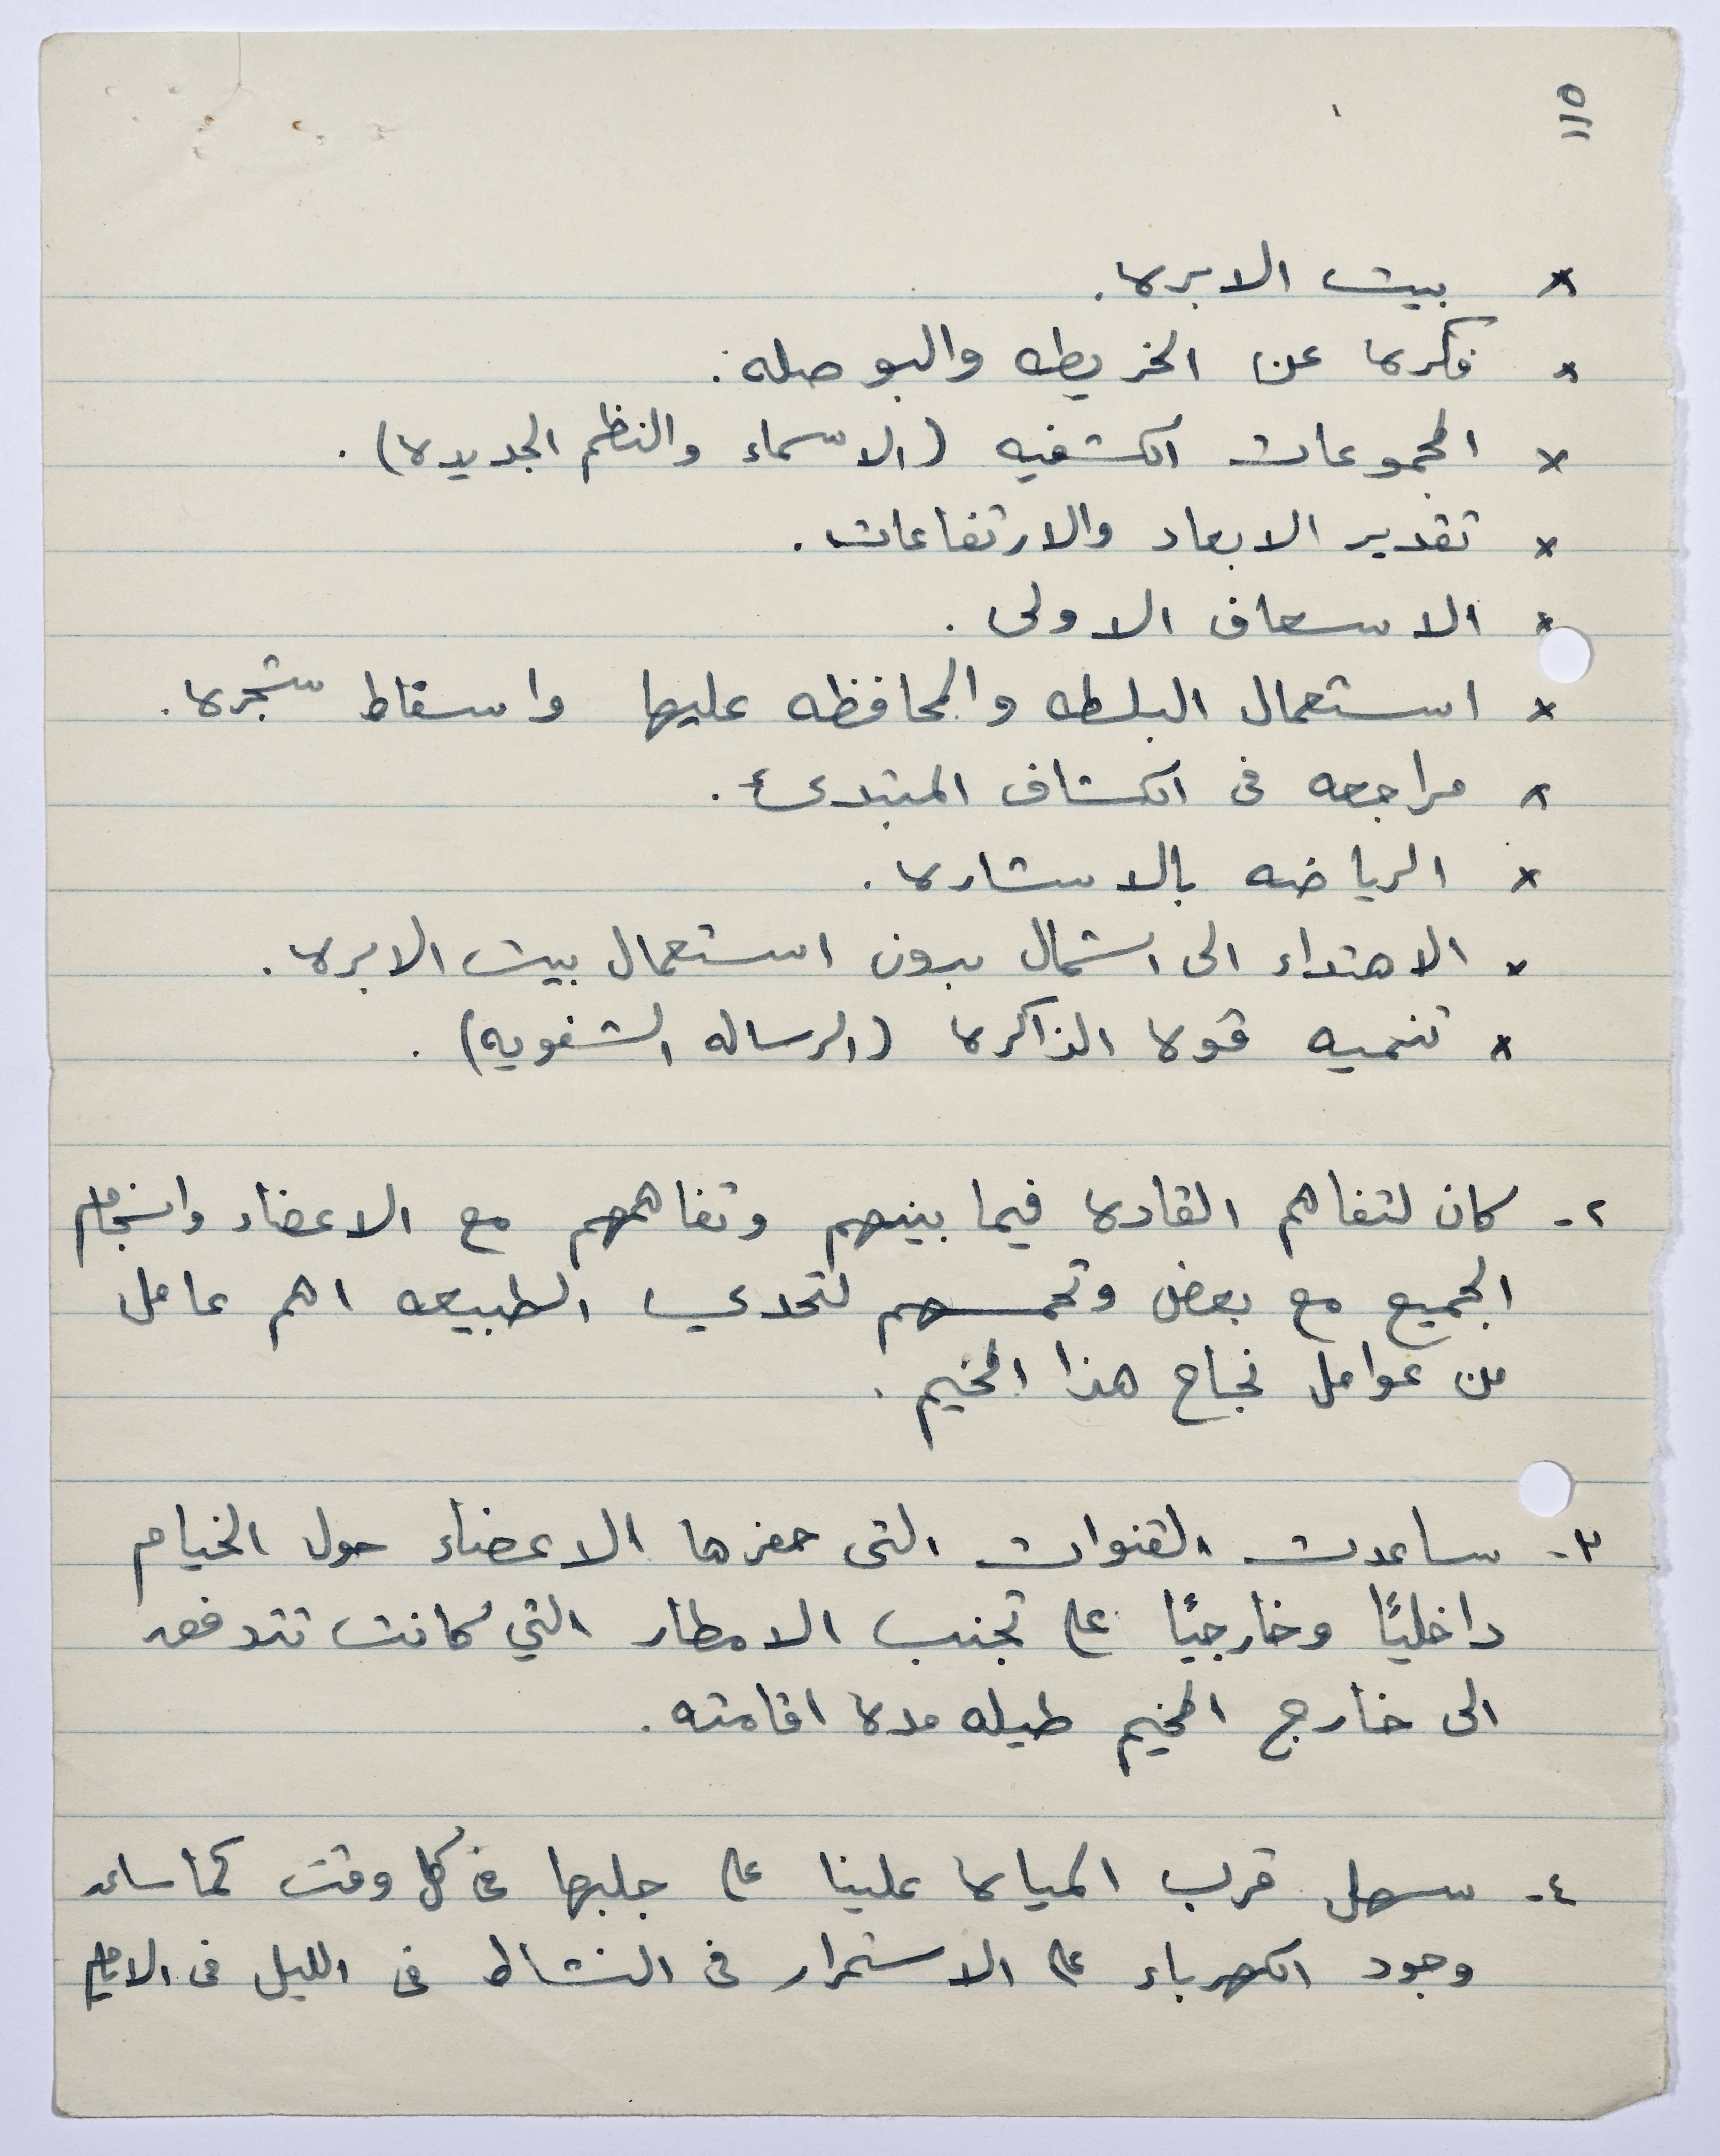 ١١٥
× بيت الابره.
× فكره عن الخريطه والبوصله.
× المجموعات الكشفيه (الاسماء والنظم الجديده).
× تقدير الابعاد والارتفاعات.
× الاسعاف الاولى.
× استعمال البلطه والمحافظه عليها واسقاط شجره.
× مراجعه فى الكشاف المبتدىء.
× الرياضه بالاشاره.
× الاهتداء الى الشمال بدون استعمال بيت الابره.
× تنميه قوه الذاكره (الرساله الشفويه).
٢- كان لتفاهم القاده فيما بينهم وتفاهمهم مع الاعضاء وانسجام
الجميع مع بعض وتحمسهم لتحدي الطبيعه اهم عامل
من عوامل نجاح هذا المخيم.
٣- ساعدت القنوات التى حفرها الاعضاء حول الخيام
داخليًا وخارجيًا على تجنب الامطار التي كانت تتدفق
الى خارج المخيم طيله مده اقامته.
٤- سهل قرب المياه علينا على جلبها فى كل وقت كما ساعد
وجود الكهرباء على الاستمرار فى النشاط فى الليل فى الايام